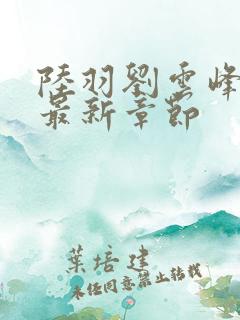 陸羽劉雲峰
最新章節
葉培建
未经同意禁止转载